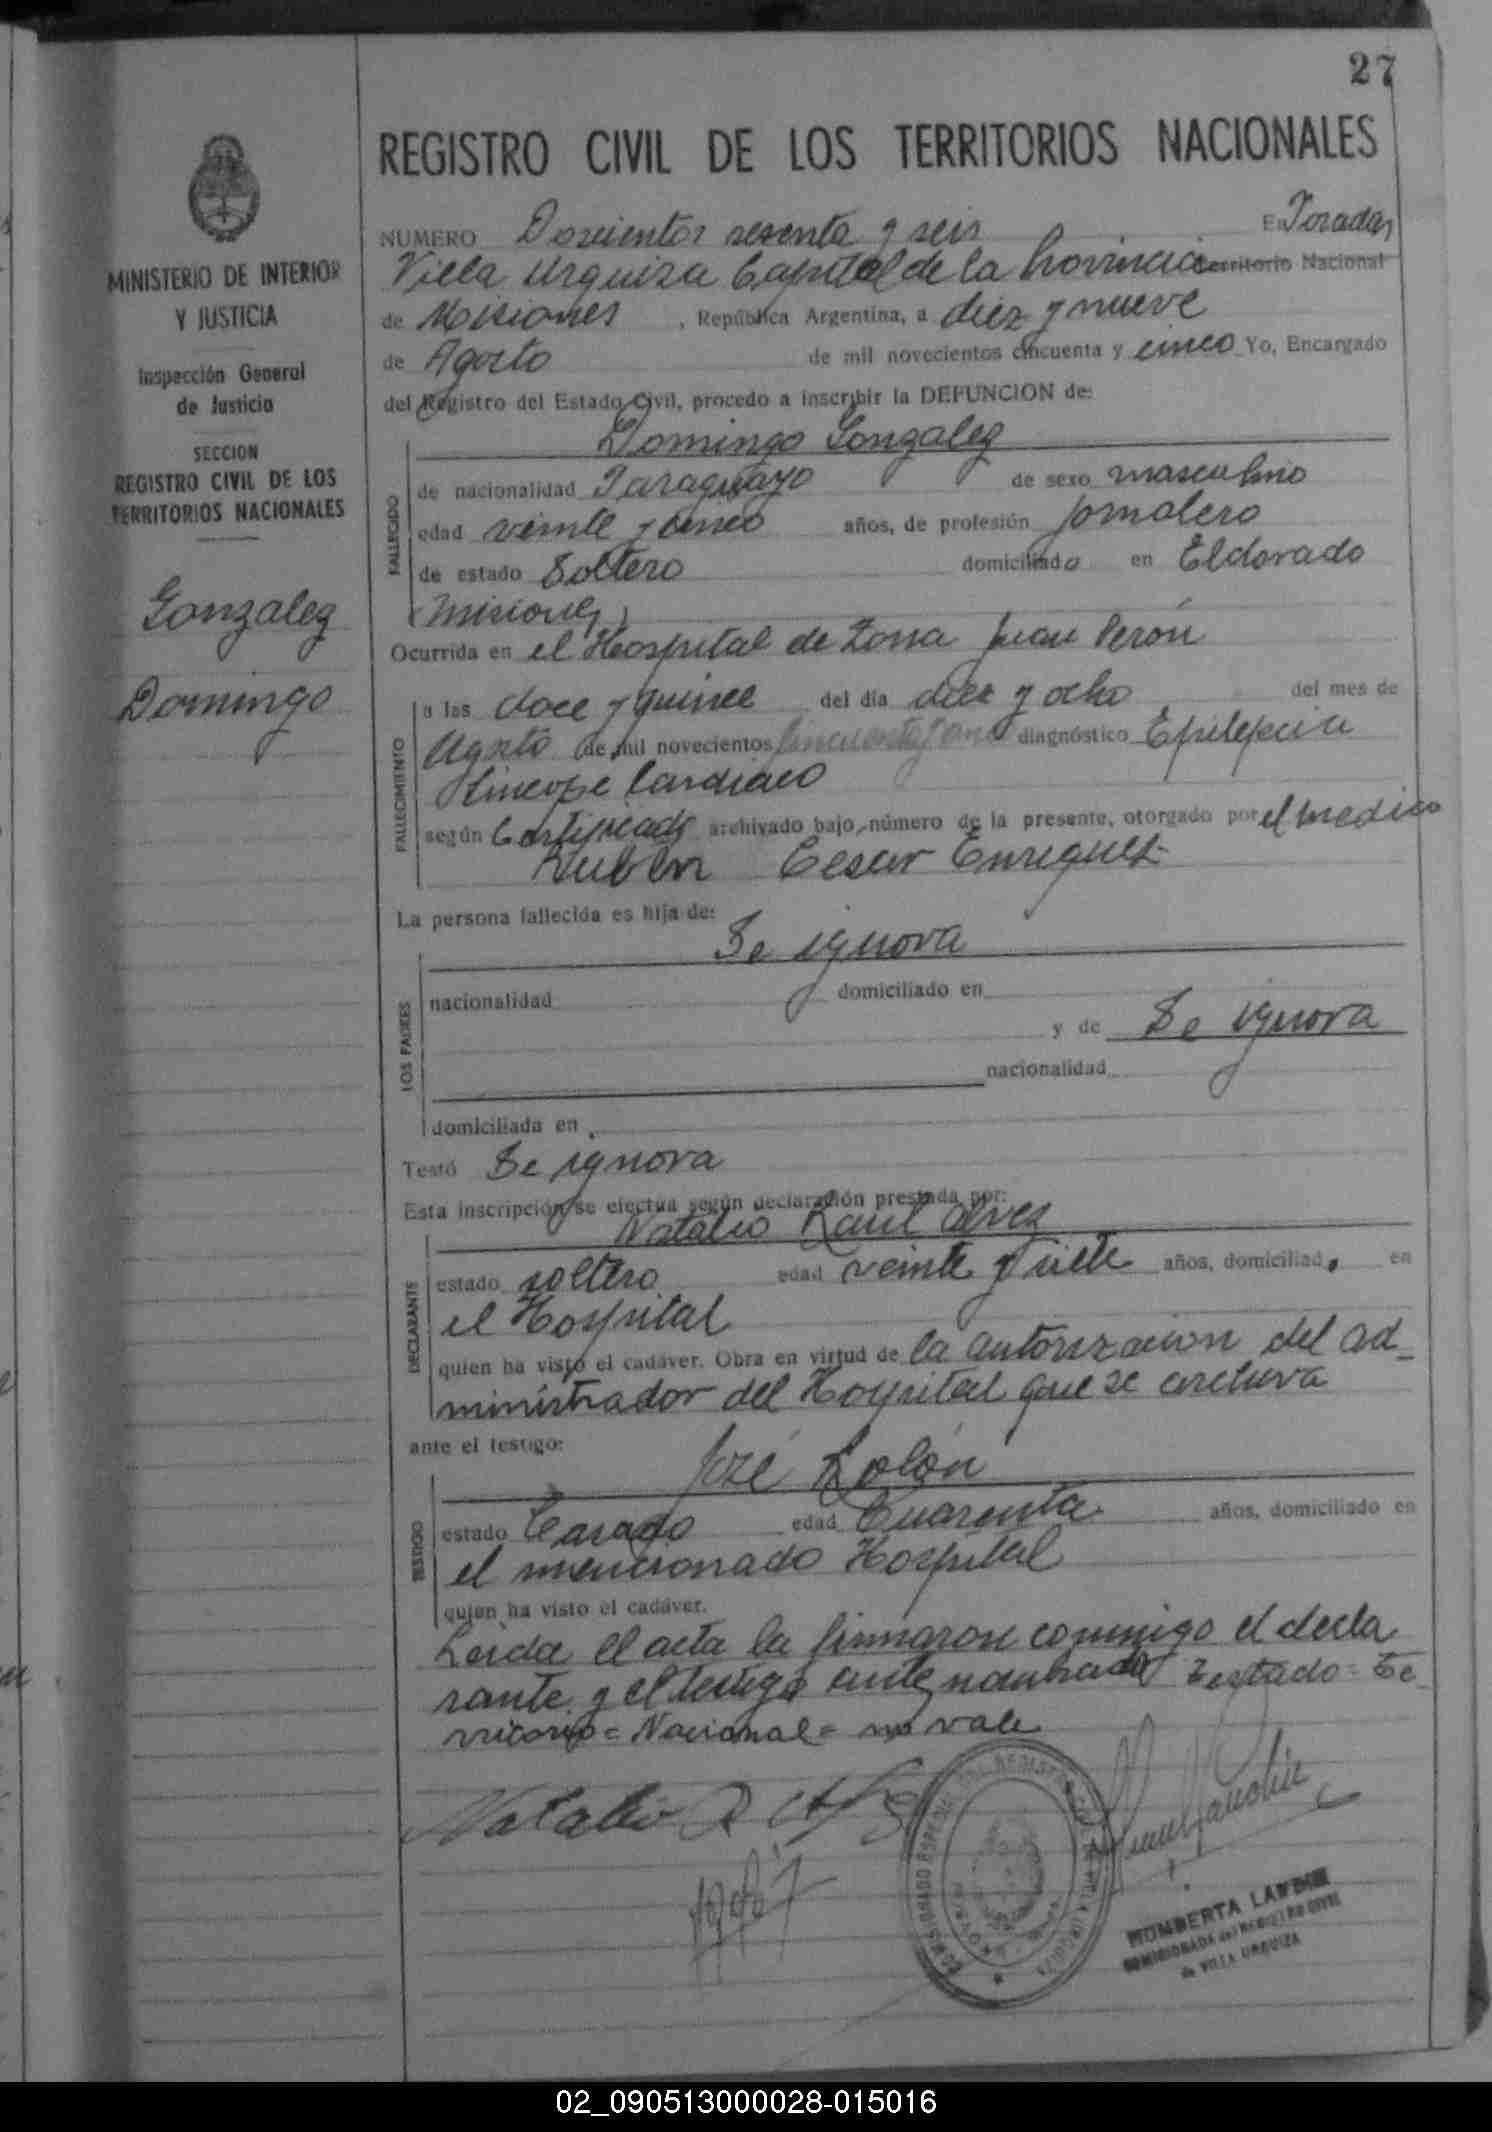 27
MINISTERIO DE INTERIOR
Y JUSTICIA
Inspección General
de Justicia
SECCION
REGISTRO CIVIL DE LOS
TERRITORIOS NACIONALES
Gonzalez
Domingo
REGISTRO CIVIL DE LOS TERRITORIOS NACIONALES
NUMERO Doscientos sesenta y seis En Posadas
Villa Urquiza Capital de la Provincia Territorio Nacional
de Misiones, República Argentina, a diez y nueve
de Agosto de mil novecientos cincuenta y cinco Yo, Encargado
del Registro del Estado Civil, procedo a inscribir la DEFUNCION de:
Domingo Gonzalez
FALLECIDO
de nacionalidad Paraguayo de sexo masculino
edad veinte y cinco años, de profesión jornalero
de estado Soltero domiciliado en Eldorado
(Misiones)
Ocurrida en el Hospital de Zona Juan Perón
FALLECIMIENTO
a las doce y quince del día diez y ocho del mes de
Agosto de mil novecientos diagnóstico Epilepcia
Sincope Cardiaco
según Certificado archivado bajo número de la presente, otorgado por el medico
Ruben Cesar Enriquez
La persona fallecida es hija de:
Se ignora
LOS PADRES
nacionalidad domiciliado en
y de Se ignora
nacionalidad
domiciliada en
Testó Se ignora
Esta inscripción se efectua según declaración prestada por:
Natalio Raul Alvez
DECLARANTE
estado soltero edad veinte y siete años, domiciliad. en
el Hospital
quien ha visto el cadáver. Obra en virtud de la autorizacion del ad_
ministrador del Hospital que se archiva
ante el testigo:
José Rolón
TESTIGO
estado Casado edad Cuarenta años, domiciliado en
el mencionado Hospital
quien ha visto el cadáver.
Leida el acta la firmaron conmigo el decla
rante y el testigo ante nombrado Testado = Te
rritorio = Nacional = no vale
Natalio R
HUMBERTA
COMISIONADA del REGISTRO CIVIL
de VILLA URQUIZA
02_090513000028-015016